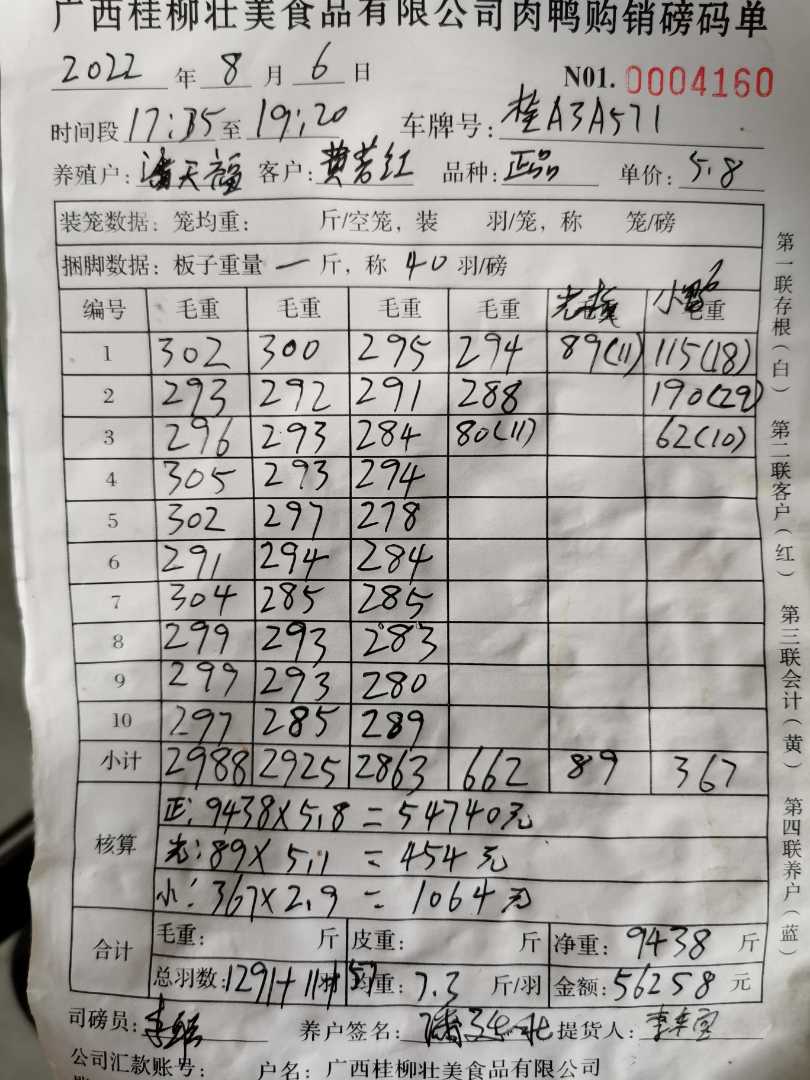 广西桂柳壮美食品有限公司肉鸭购销磅码单
2022 年 8 月 6 日 N01. 0004160
时间段 17:35 至 19:20 车牌号: 桂A3A571
养殖户: 潘天福 客户: 黄若红 品种: 正品 单价: 5.8
装笼数据: 笼均重: 斤/空笼, 装 羽/笼, 称 笼/磅
捆脚数据: 板子重量 一 斤, 称 40 羽/磅
编号 毛重 毛重 毛重 毛重 光 小鸭 毛重
1 302 300 295 294 89(11) 115(18)
2 293 292 291 288 190(29)
3 296 293 284 80(11) 62(10)
4 305 293 294
5 302 297 278
6 291 294 284
7 304 285 285
8 299 293 283
9 299 293 280
10 297 285 289
小计 2988 2925 2863 662 89 367
核算
正: 9438×5.8=54740元
光: 89×5.1=454元
小: 367×2.9=1064元
合计
毛重: 斤 皮重: 斤 净重: 9438 斤
总羽数: 1291+11+57 均重: 7.3 斤/羽 金额: 56258 元
司磅员: 养户签名: 提货人:
公司汇款账号: 户名: 广西桂柳壮美食品有限公司
第一联存根(白) 第二联客户(红) 第三联会计(黄) 第四联养户(蓝)